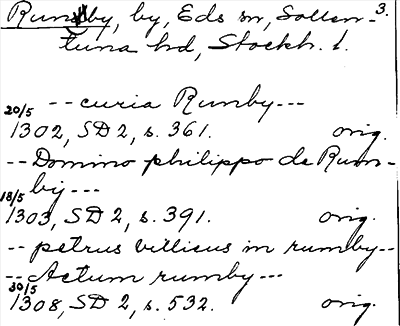 Rumby, by, Eds sn, Sollen- 3.
tuna hd, Stockh. l.
--curia Rumby---
20/5
1302, SD 2, s. 361. orig.
--Domino philippo de Rum-
bij---
18/5
1303, SD 2, s. 391. orig.
-- petrus villicus in rumby--
-- Actum rumby---
30/5
1308, SD 2, s. 532. orig.